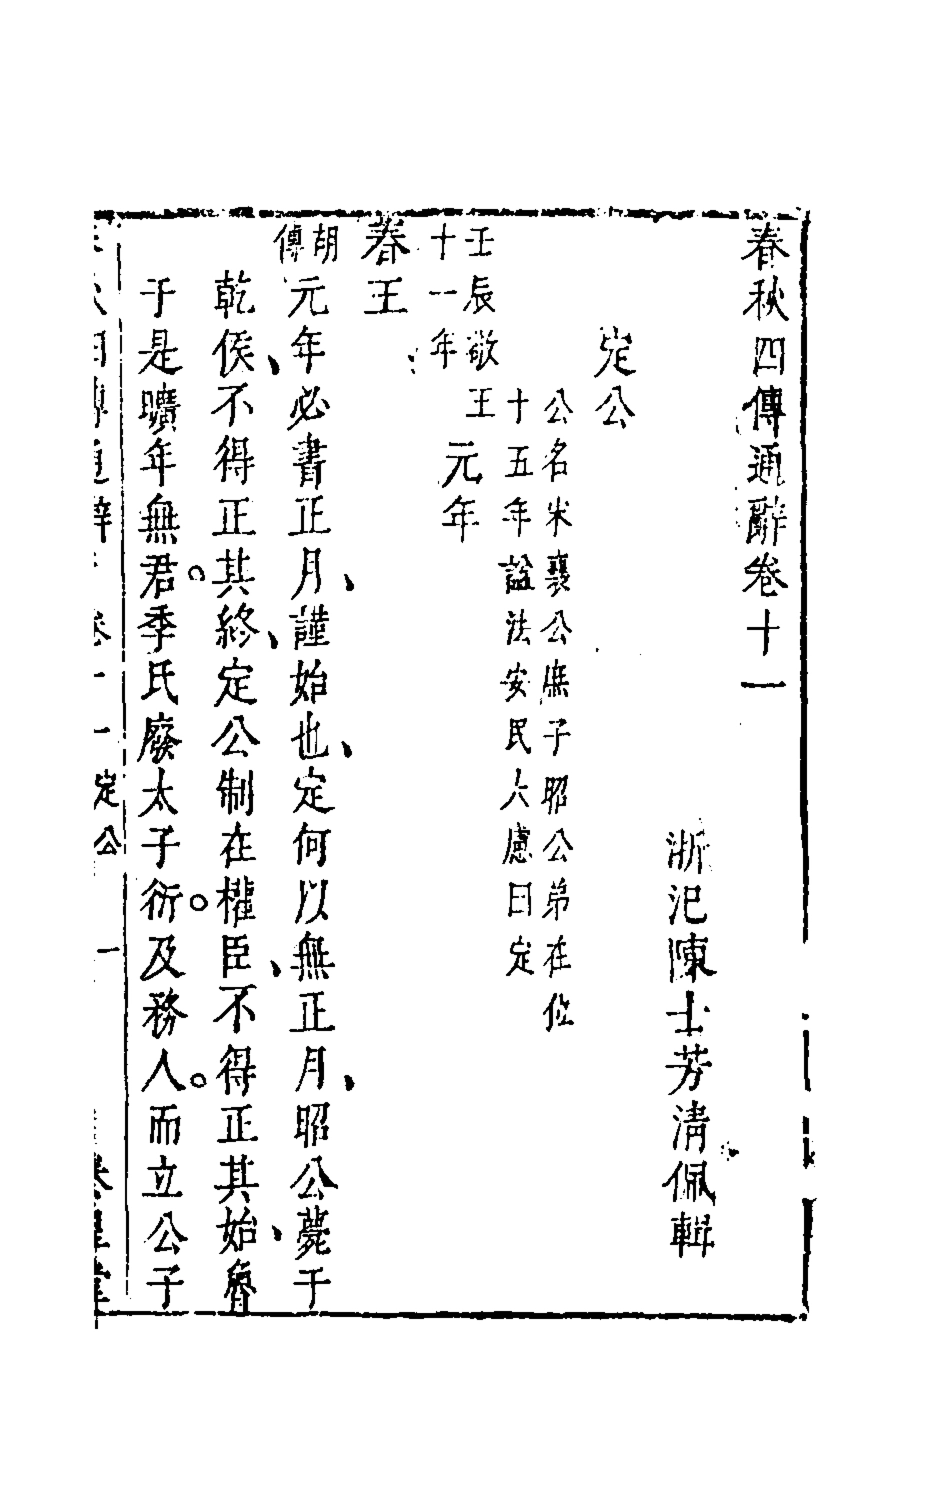 春秋四傳通辭卷十一
浙汜陳士芳清佩輯
定公
公名宋襄公庶子昭公弟在位
十五年諡法安民大慮曰定
壬辰敬王
十一年
元年
春王
胡傳
元年必書正月、謹始也、定何以無正月、昭公薨于
乾侯、不得正其終、定公制在權臣、不得正其始、魯
于是曠年無君。季氏廢太子衍。及務人。而立公子
定公 一